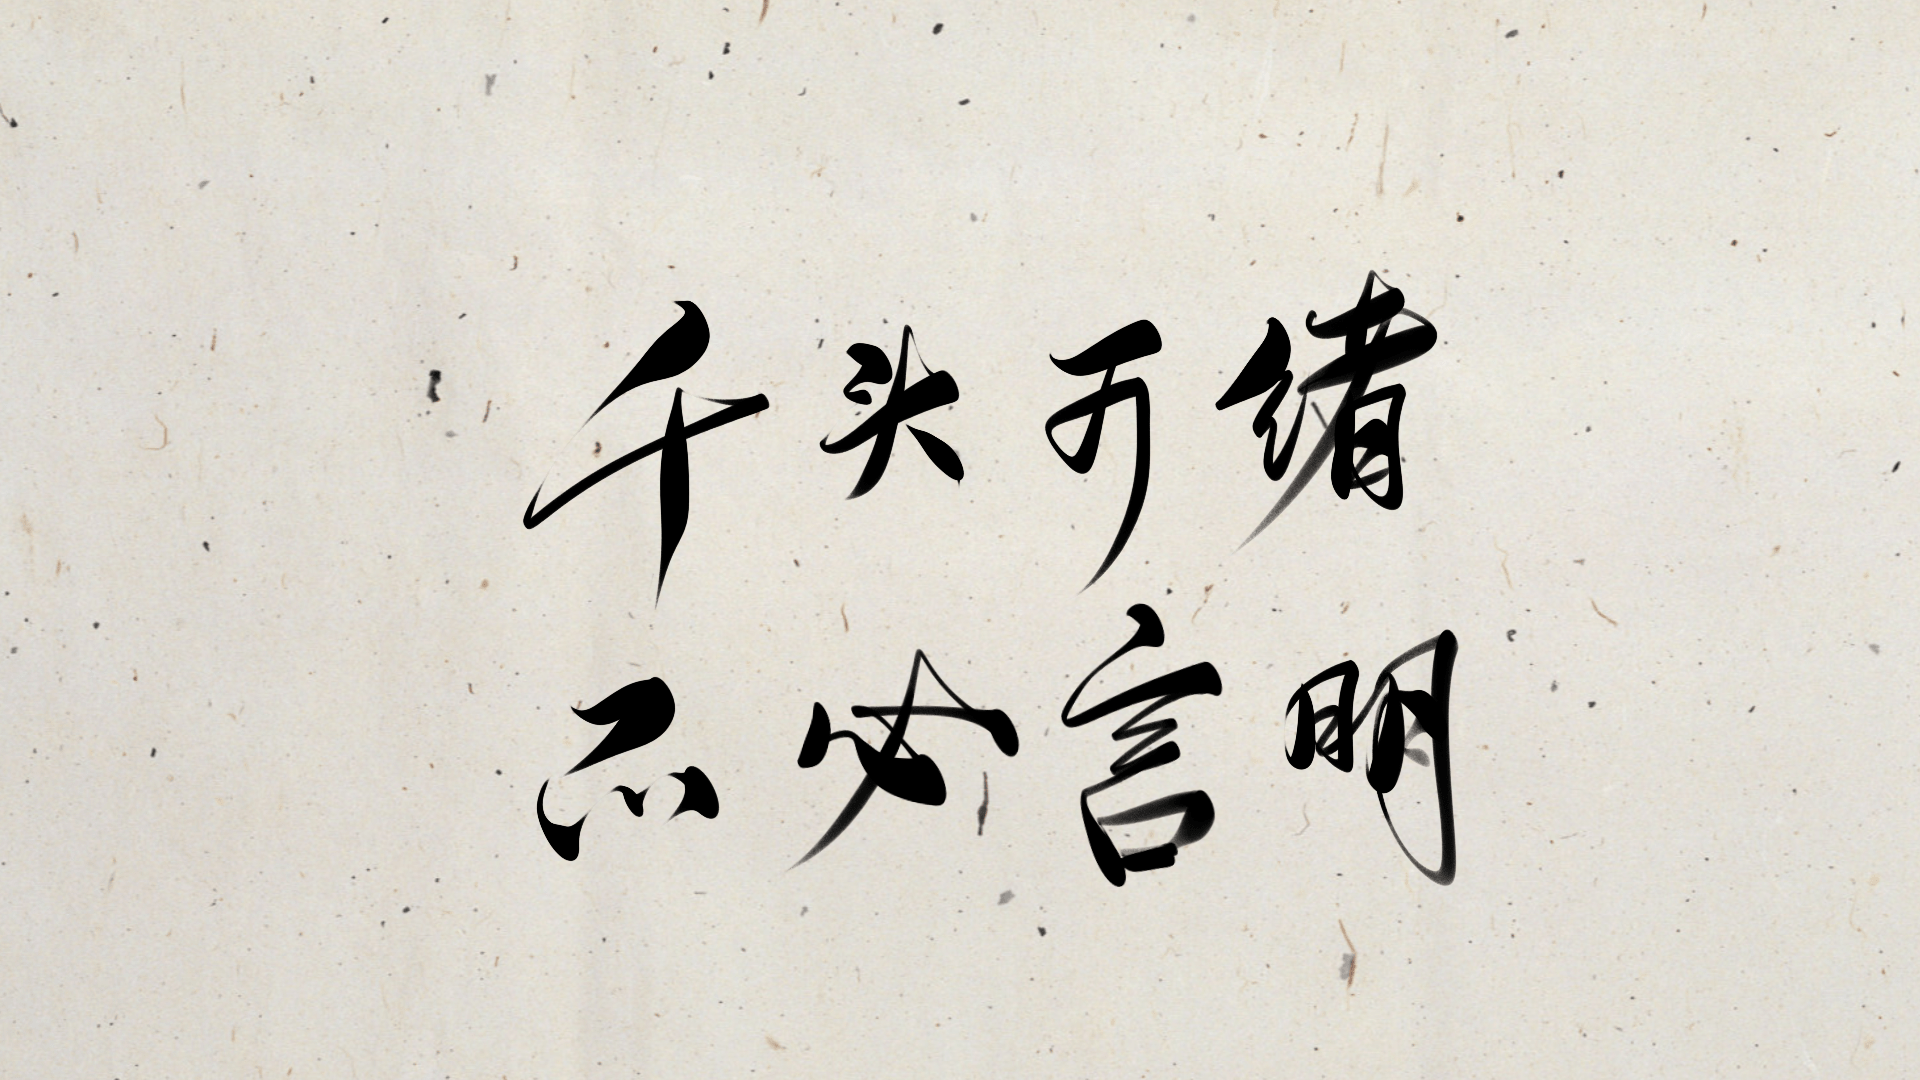 千头可绪
不必言明